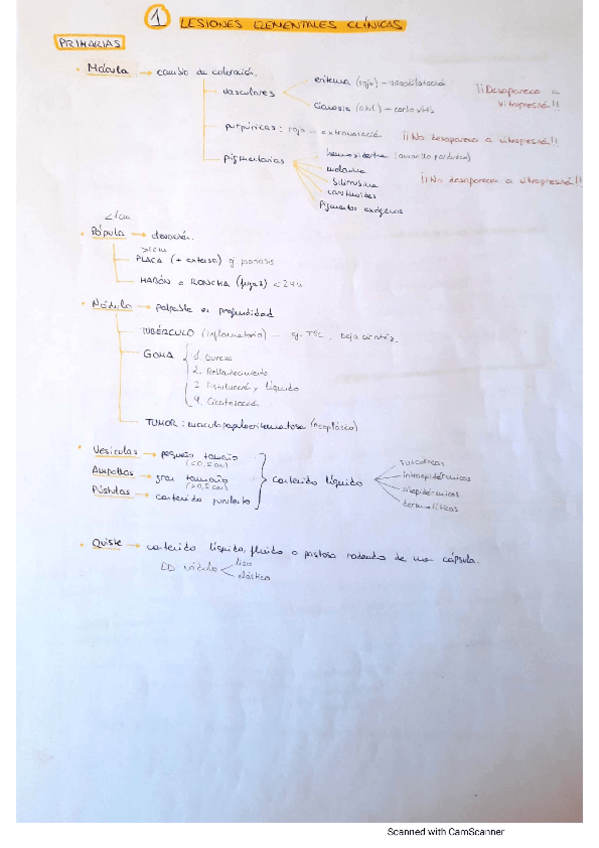 1 LESIONES ELEMENTALES CLÍNICAS
PRIMARIAS
· Mácula → cambio de coloración.
vasculares
eritema (rojo) - vasodilatación
cianosis (azul) -
¡¡Desaparece a vitropresió!!
purpúricas: rojo - extravasació
¡¡No desaparece a vitropresió!!
pigmentarias
hemosiderina (amarillo parduzco)
melanina
bilirrubina
carotenoides
Pigmentos exógenos
¡¡No desaparece a vitropresió!!
<1cm
· Pápula → elevación.
>1cm
PLACA (+ extensa) ej. psoriasis
HABÓN o RONCHA (fugaz) <24h
· Nódulo → palpable en profundidad
TUBÉRCULO (inflamatorio) - ej. TBC, deja cicatriz.
GOMA
1. Dureza
2. Reblandecimiento
3. Fistulización, líquido
4. Cicatrización
TUMOR: (neoplásico)
· Vesículas → pequeño tamaño
(<0,5cm)
Ampollas → gran tamaño
(>0,5cm)
Pústulas → contenido purulento
contenido líquido
subcórneas
intraepidérmicas
subepidérmicas
dermolíticas
· Quiste → contenido líquido, fluido o pastoso rodeado de una cápsula.
DD nódulo
liso
elástico
Scanned with CamScanner